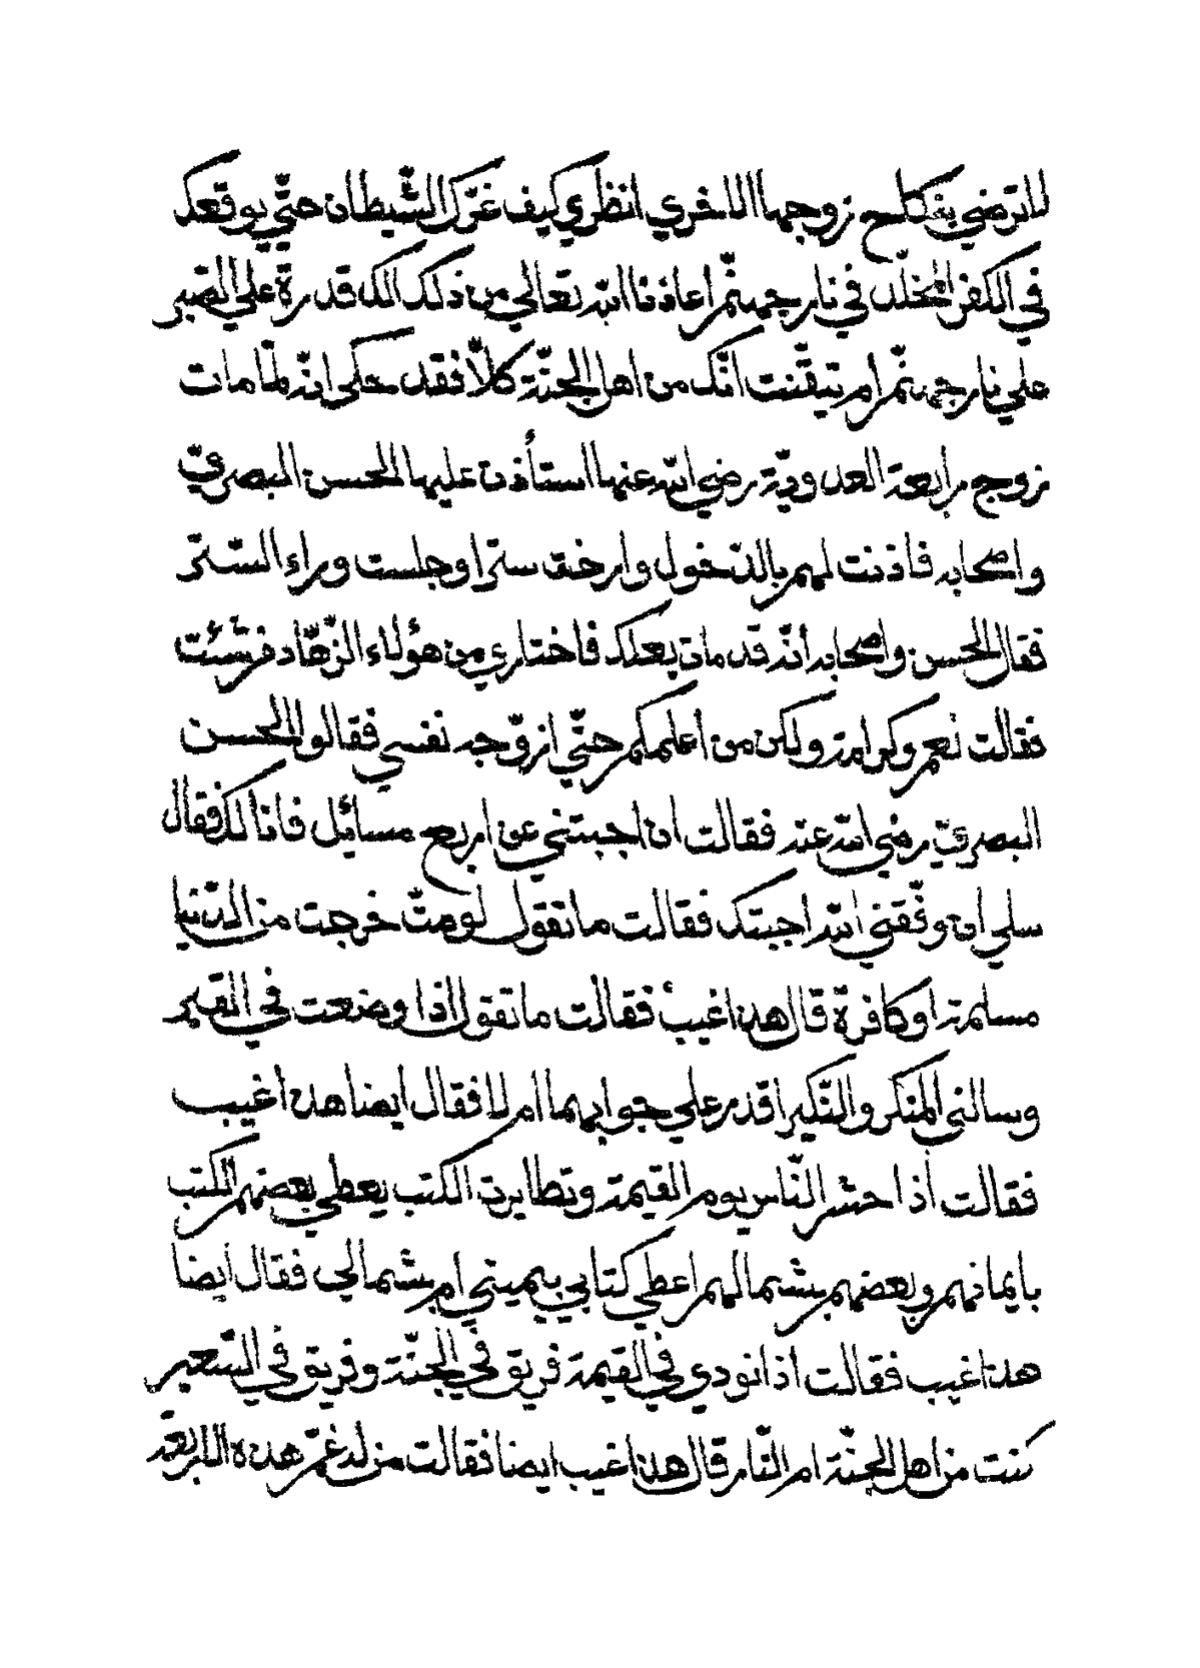 لا ترضي بنكاح زوجها الاخري انظري كيف غرّك الشّيطان حتّي يوقعك
في الكفر المخلّد في نار جهنّم اعاذنا اللّه تعالي من ذلك الك قدرة علي الصّبر
علي نار جهنّم ام تيقّنت انّك من اهل الجنّة كلّا فقد حكي انّه لمّا مات
زوج رابعة العدويّة رضي اللّه عنها استأذن عليها الحسن البصريّ
واصحابه فاذنت لهم بالدّخول وارخت سترا وجلست وراء السّتر
فقال الحسن واصحابه أنّه قد مات بعلك فاختاري من هؤلاء الزّهّاد من شئت
فقالت نعم وكرامة ولكن من أعلمكم حتّي ازوّجه نفسي فقالوا الحسن
البصريّ رضي اللّه عنه فقالت ان اجبتني عن اربع مسائل فانا لك فقال
سلي ان وفّقني اللّه اجبتك فقالت ما تقول لو متّ خرجت من الدّنيا
مسلمة او كافرة قال هذا غيبٌ فقالت ما تقول اذا وضعت في القبر
وسالني المنكر والنّكير اقدر علي جوابهما ام لا فقال أيضا هذا غيب
فقالت أذا حشر النّاس يوم القيمة وتطايرت الكتب يعطي بعضهم الكتب
بأيمانهم وبعضهم بشمالهم اعطي كتابي بيميني ام بشمالي فقال أيضا
هذا غيب فقالت أذا نودي في القيمة فريق في الجنّة وفريق في السّعير
كنت من اهل الجنّة ام النّار قال هذا غيب ايضا فقالت من له غمّ هذه الاربعة